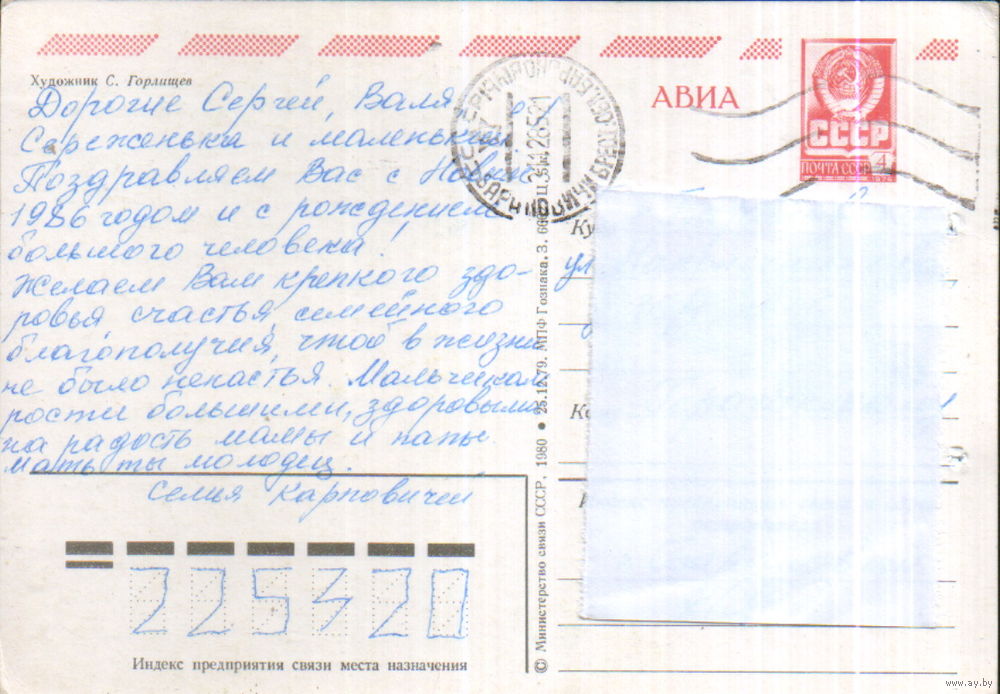 Художник С. Горлищев
АВИА
СССР
ПОЧТА СССР 4
Дорогие Сергей, Валя
Сереженька и маленький
Поздравляем Вас с Новым
1986 годом и с рождением
большого человека!
Желаем Вам крепкого здо-
ровья, счастья, семейного
благополучия, чтоб в жизни
не было ненастья. Мальчикам
рости большими, здоровыми
на радость мамы и папы.
Мать ты молодец.
Семья Карповичей
225320
Индекс предприятия связи места назначения
© Министерство связи СССР, 1980 ● 25.12.79. МПФ Гознака. З.
Ку
ул
www.ay.by